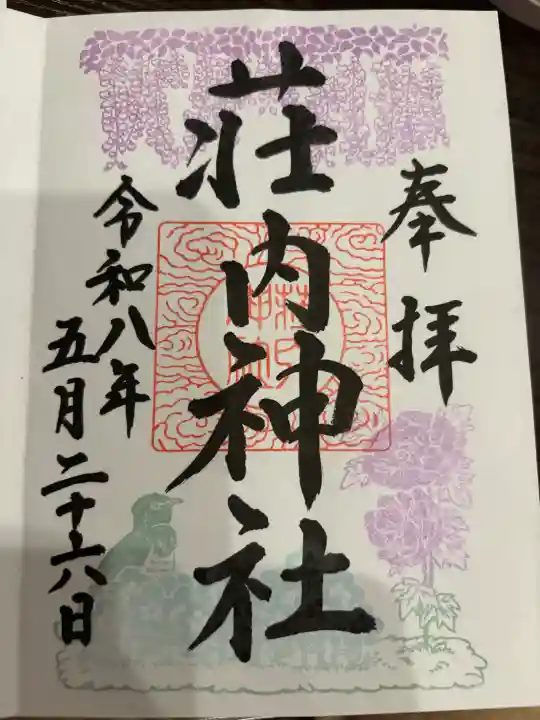 奉拝
荘内神社
令和八年
五月二十六日